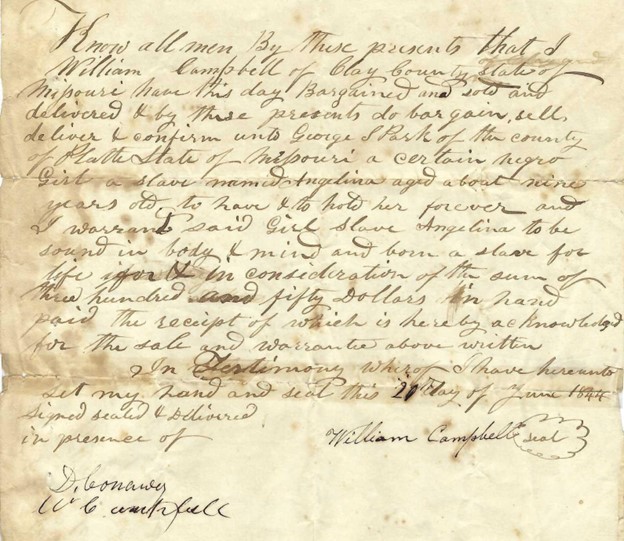 Know all men By these presents that I
William Campbell of Clay County State of
Missouri have this day Bargained and sold and
delivered & by these presents do bargain, sell
deliver & confirm unto George S Park of the county
of Platte State of Missouri a certain negro
Girl a slave named Angelina aged about nine
years old, to have & to hold her forever and
I warrant said Girl Slave Angelina to be
sound in body & mind and born a slave for
life for & in consideration of the sum of
three hundred and fifty Dollars in hand
paid the receipt of which is hereby acknowledged
for the sale and warrantie above written
In Testimony wherof I have hereunto
set my hand and seal this day of June 1844
Signed sealed & Delivered
in presence of
William Campbell seal
D. Conaway